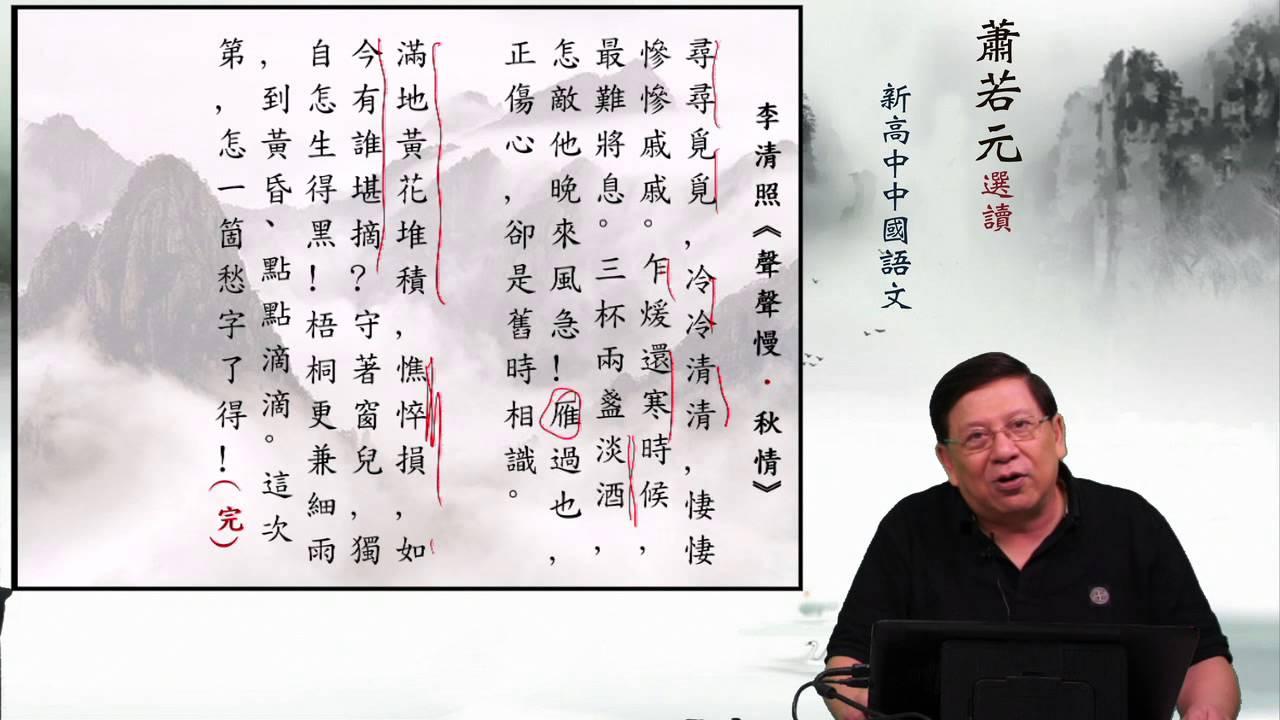 蕭若元選讀
新高中中國語文
李清照《聲聲慢・秋情》
尋尋覓覓,冷冷清清,悽悽
慘慘戚戚。乍煖還寒時候,
最難將息。三杯兩盞淡酒,
怎敵他晚來風急!雁過也,
正傷心,卻是舊時相識。
滿地黃花堆積,憔悴損,如
今有誰堪摘?守著窗兒,獨
自怎生得黑!梧桐更兼細雨
,到黃昏、點點滴滴。這次
第,怎一箇愁字了得!(完)